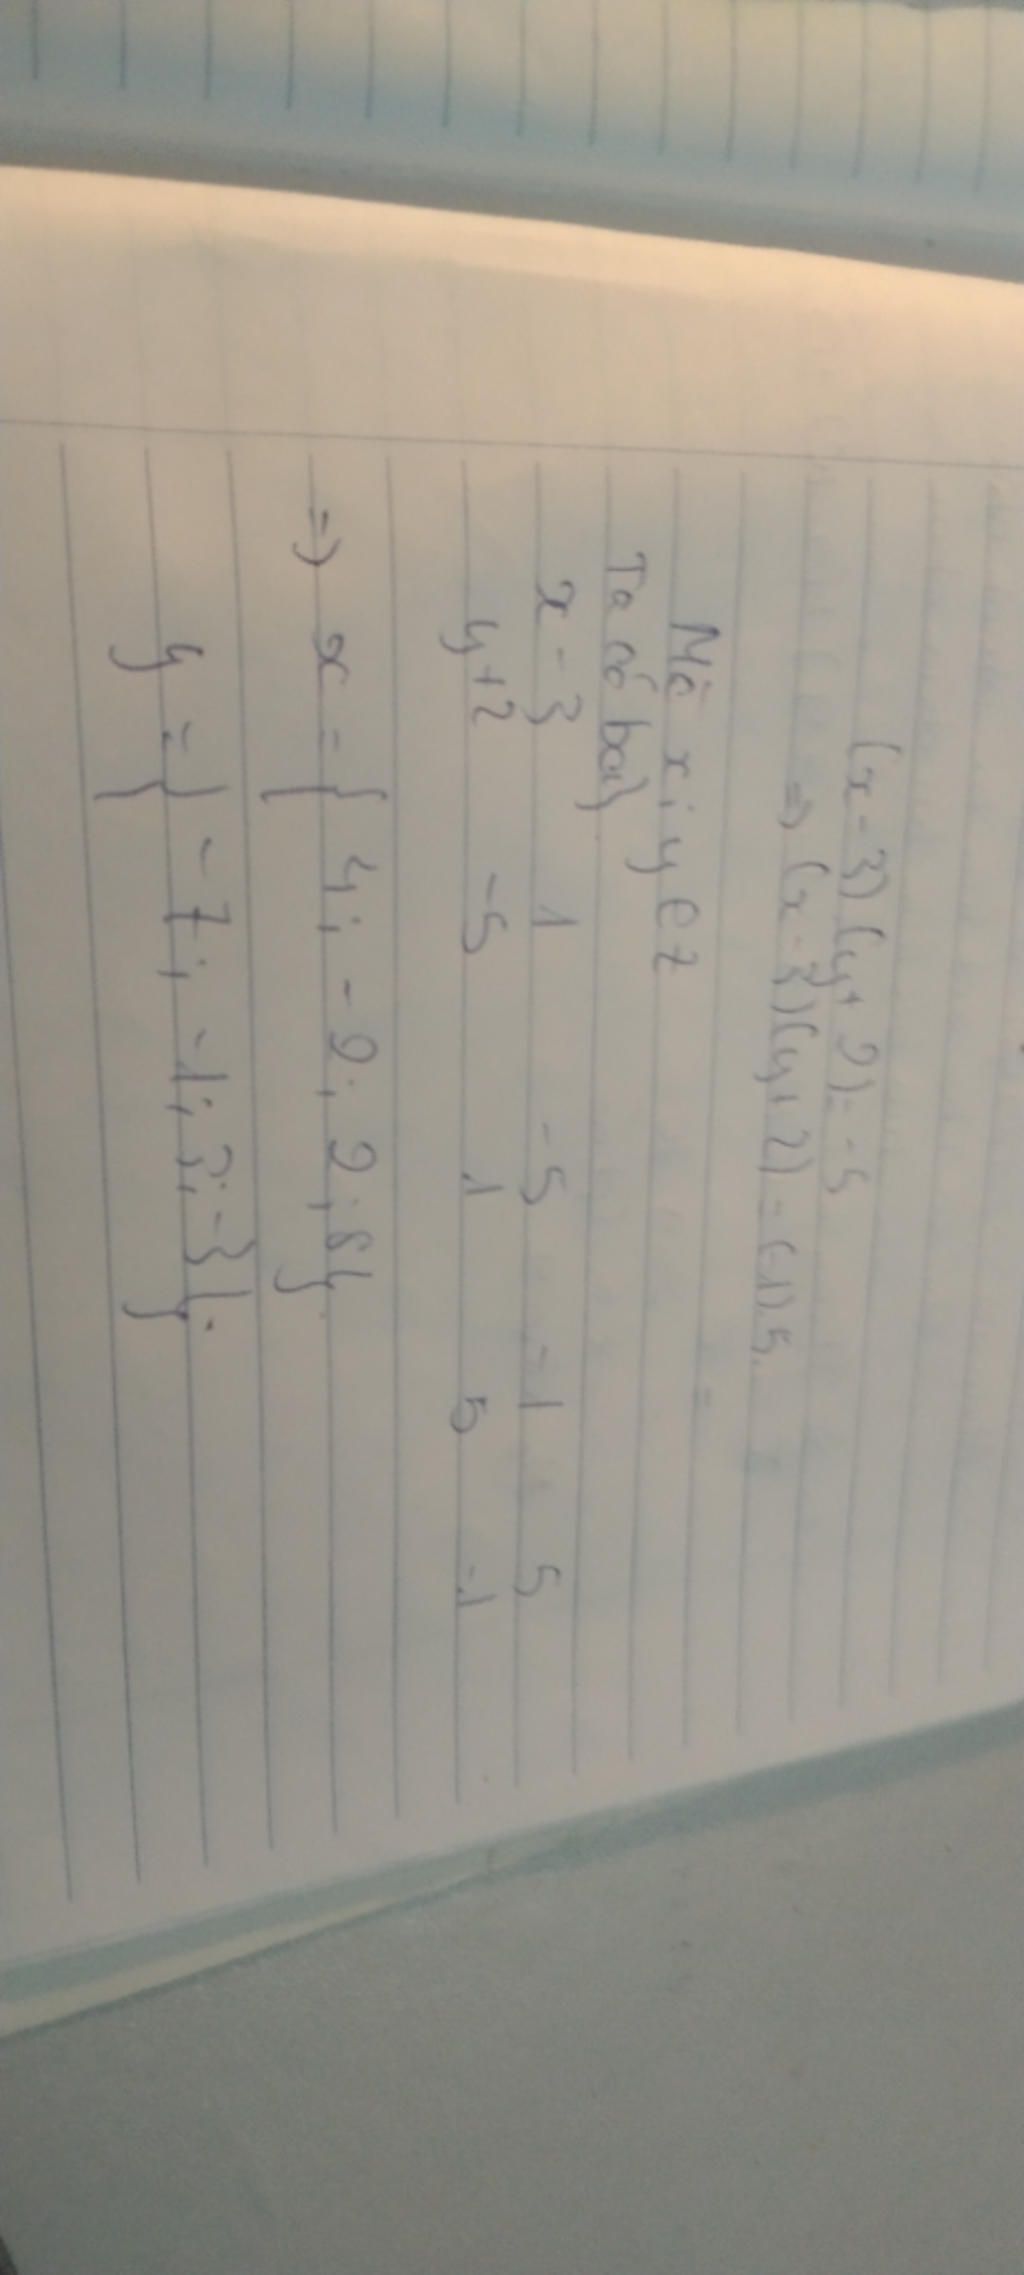 (x - 3)(y + 2) = -5
=> (x - 3)(y + 2) = (-1).5.
Mà x; y ∈ Z
Ta có bảng
x - 3 1 -5 -1 5
y + 2 -5 1 5 -1
=> x = { 4; -2; 2; 8}.
y = { -7; -1; 3; -3}.